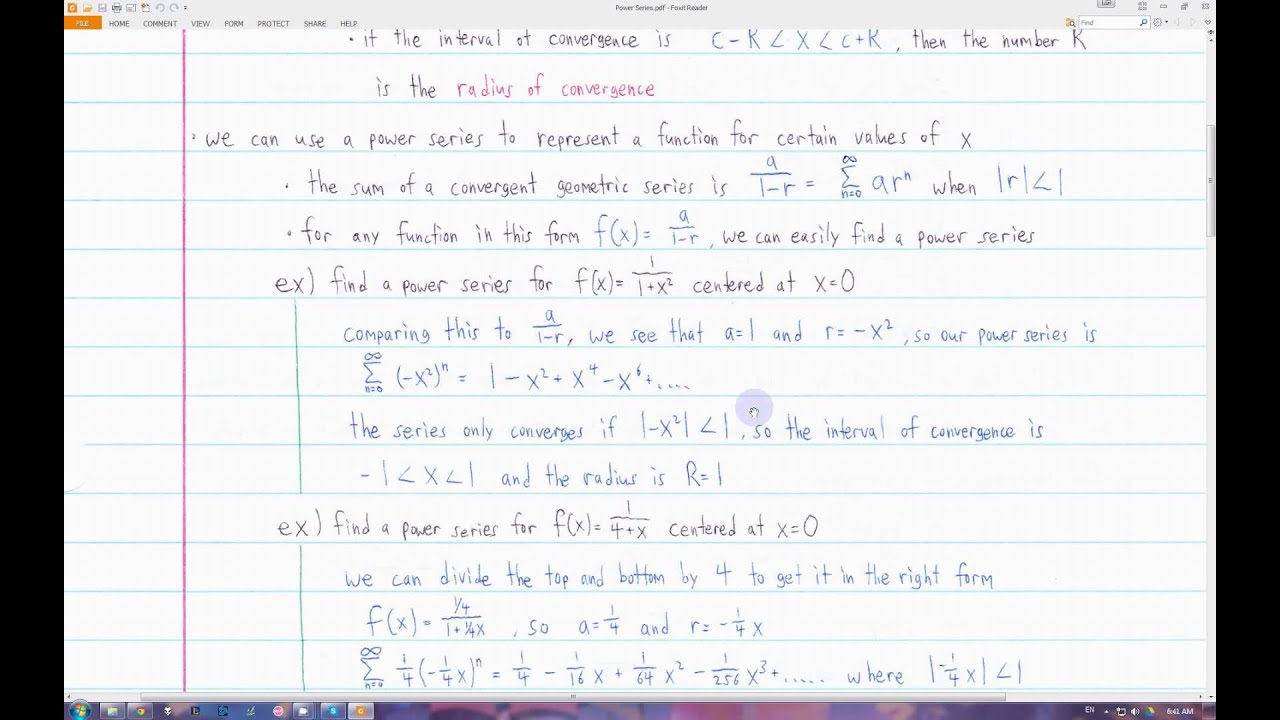 Power Series.pdf - Foxit Reader
FILE HOME COMMENT VIEW FORM PROTECT SHARE HELP Find
• if the interval of convergence is c-R < x < c+R, then the number R
is the radius of convergence
• we can use a power series to represent a function for certain values of x
• the sum of a convergent geometric series is a/(1-r) = ∞ Σ n=0 arⁿ when |r|<1
• for any function in this form f(x)= a/(1-r), we can easily find a power series
ex) find a power series for f(x)= 1/(1+x²) centered at x=0
comparing this to a/(1-r), we see that a=1 and r=-x², so our power series is
∞ Σ n=0 (-x²)ⁿ = 1 - x² + x⁴ - x⁶ + ....
the series only converges if |-x²| < 1, so the interval of convergence is
-1 < x < 1 and the radius is R=1
ex) find a power series for f(x)= 1/(4+x) centered at x=0
we can divide the top and bottom by 4 to get it in the right form
f(x) = (1/4)/(1+1/4x), so a=1/4 and r=-1/4x
∞ Σ n=0 1/4(-1/4x)ⁿ = 1/4 - 1/16x + 1/64x² - 1/256x³ + ..... where |-1/4x| < 1
EN 6:41 AM